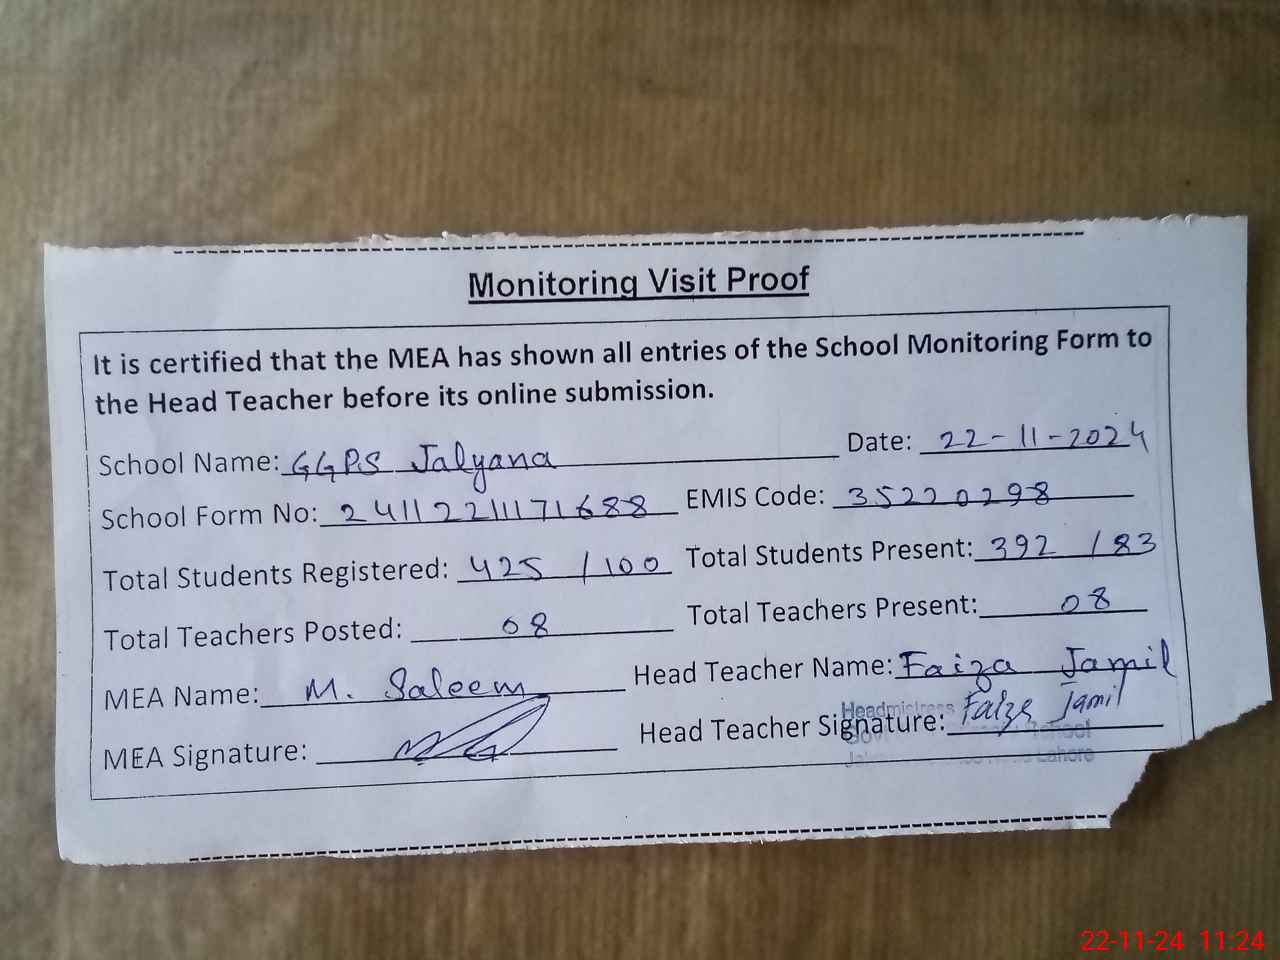 Monitoring Visit Proof
It is certified that the MEA has shown all entries of the School Monitoring Form to
the Head Teacher before its online submission.
School Name: GGPS Jalyana Date: 22-11-2024
School Form No: 241122111171688 EMIS Code: 35220298
Total Students Registered: 425 /100 Total Students Present: 392 /83
Total Teachers Posted: 08 Total Teachers Present: 08
MEA Name: M. Saleem Head Teacher Name: Faiza Jamil
MEA Signature: Head Teacher Signature: Faiza Jamil
Headmistress
School
Lahore
22-11-24 11:24